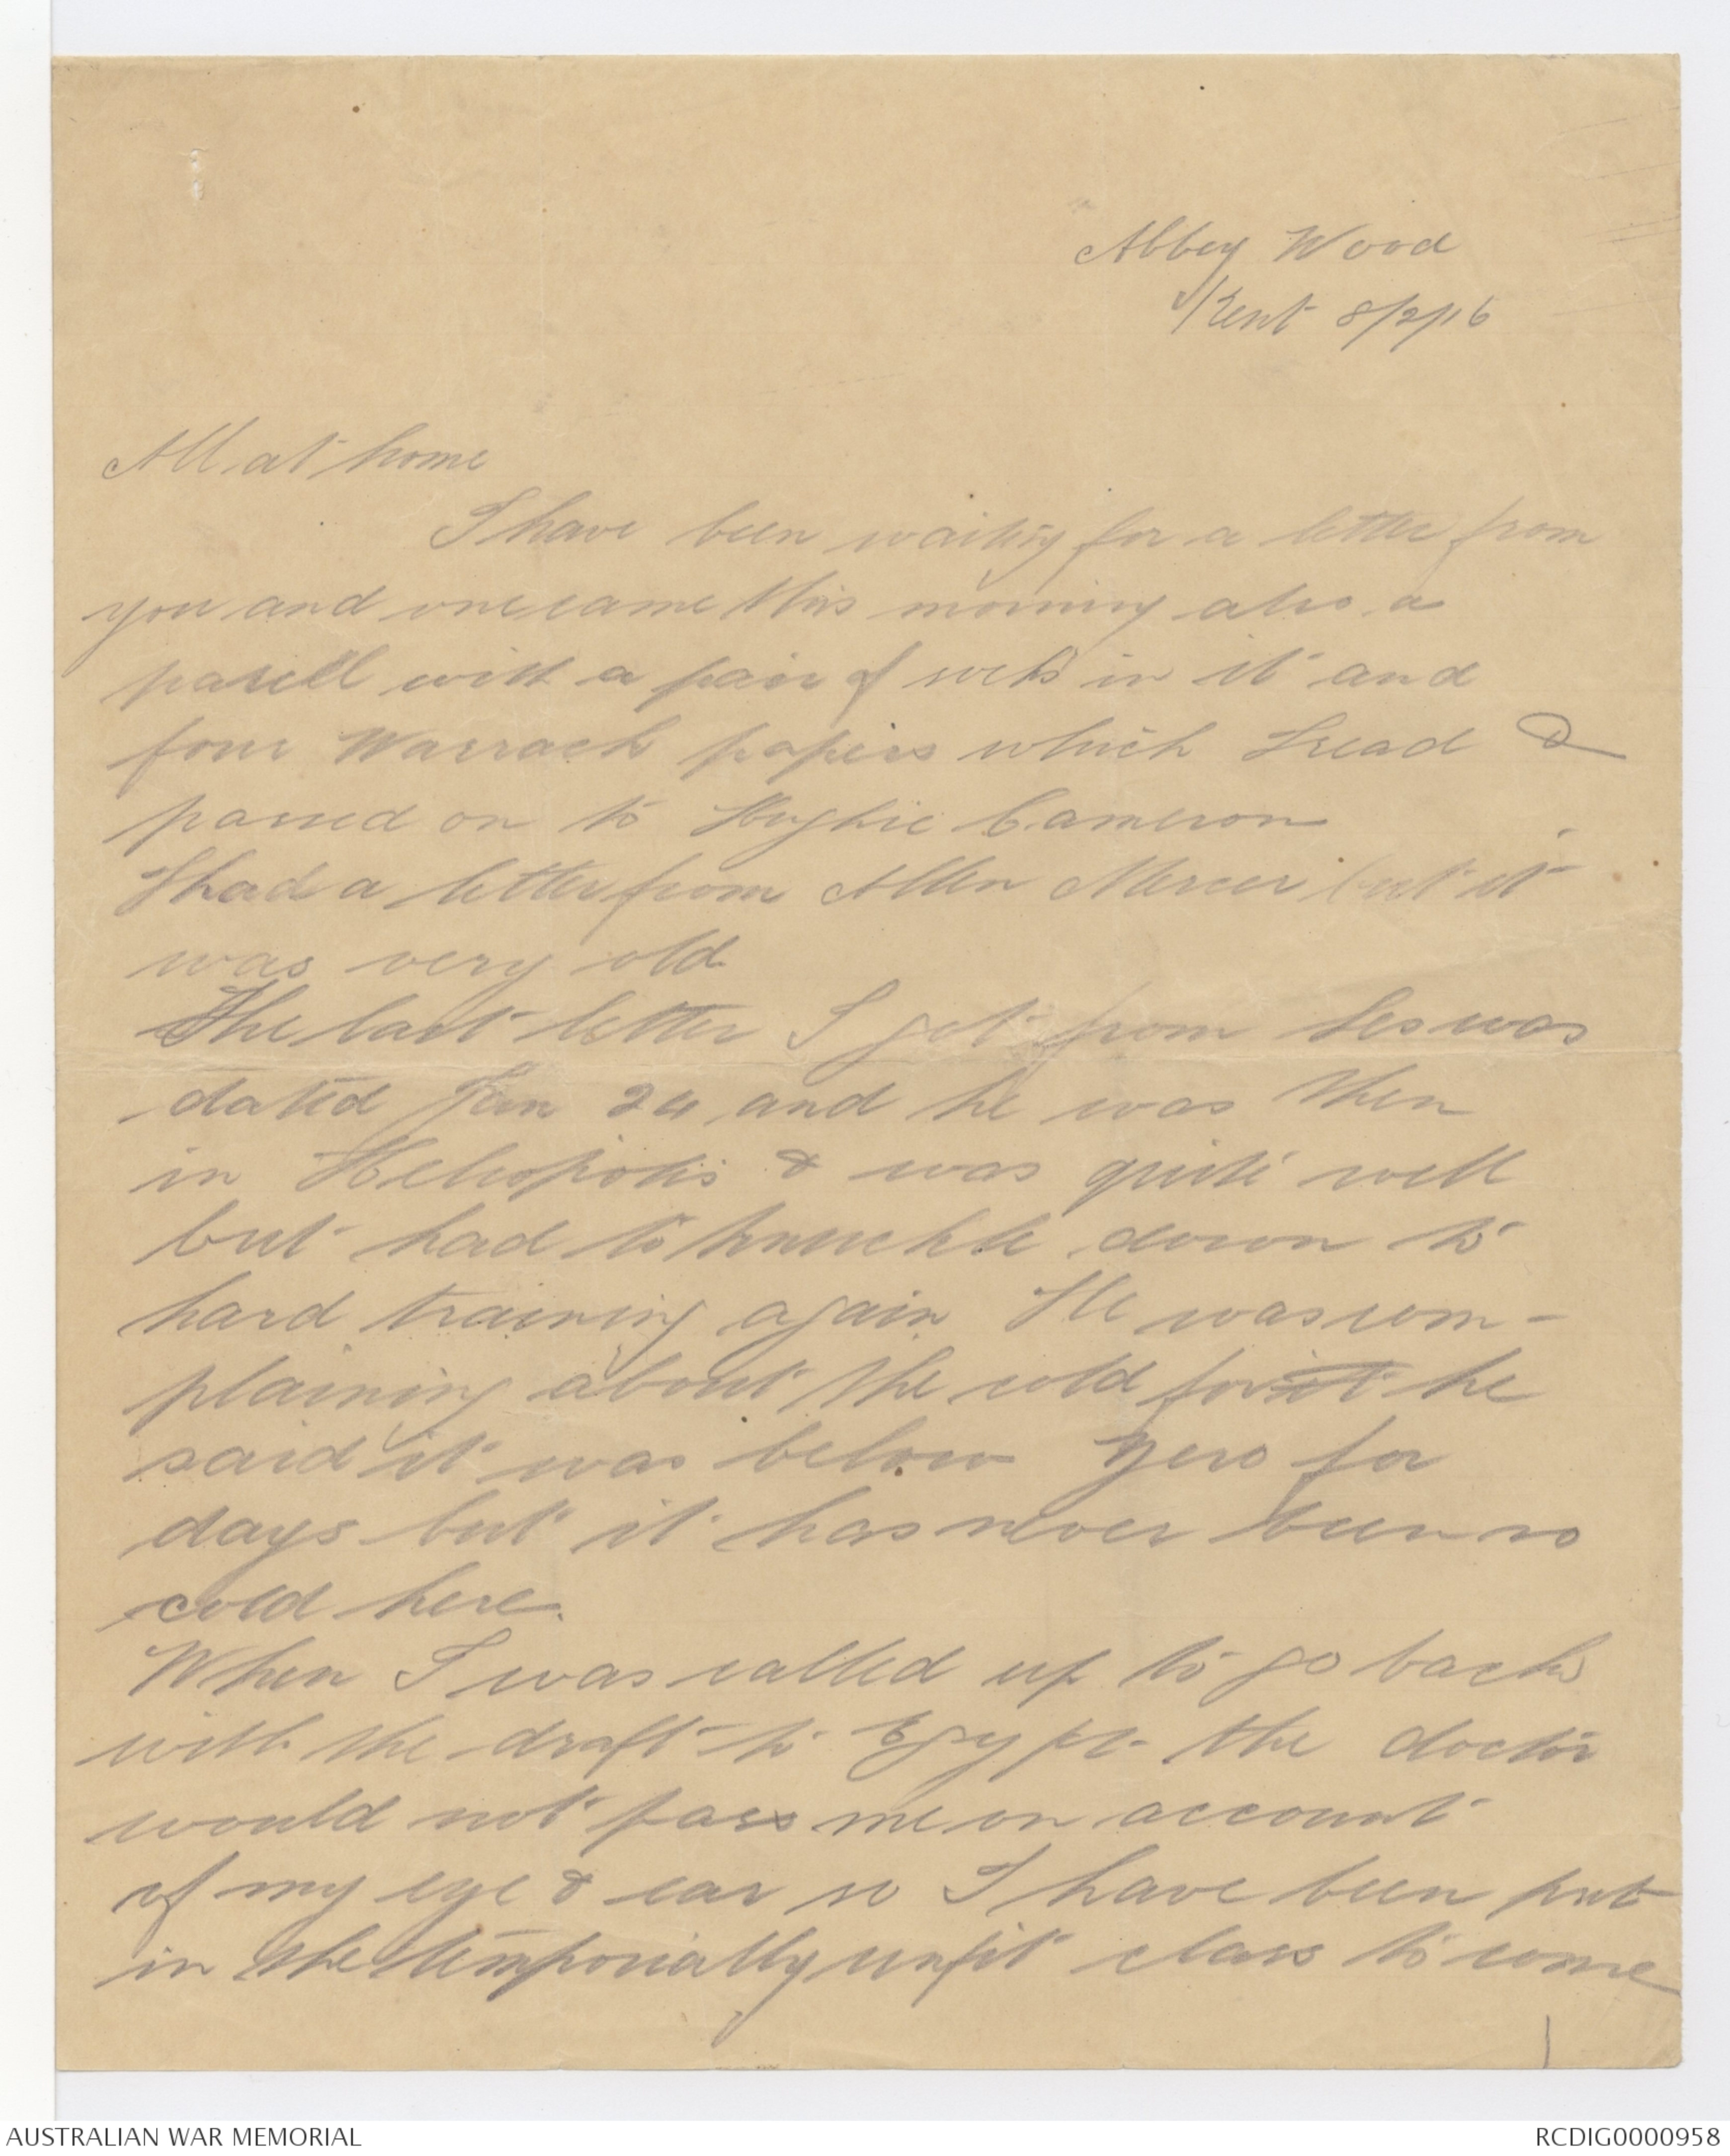 Abbey Wood
Kent 8/2/16
All at home
I have been waiting for a letter from
you and one came this morning also a
parcell with a pair of socks in it and
four Warrack papers which I read &
passed on to Hughie Cameron
I had a letter from Allen Mercer but it
was very old
The last letter I got from Les was
dated Jan 24 and he was then
in Heliopolis & was quite well
but had to knuckle down to
hard training again He was com-
plaining about the cold for it he
said it was below zero for
days but it has never been so
cold here.
When I was called up to go back
with the draft to Egypt the doctor
would not pass me on account
of my eye & ear so I have been put
in the temporially unfit class to come
AUSTRALIAN WAR MEMORIAL
RCDIG0000958